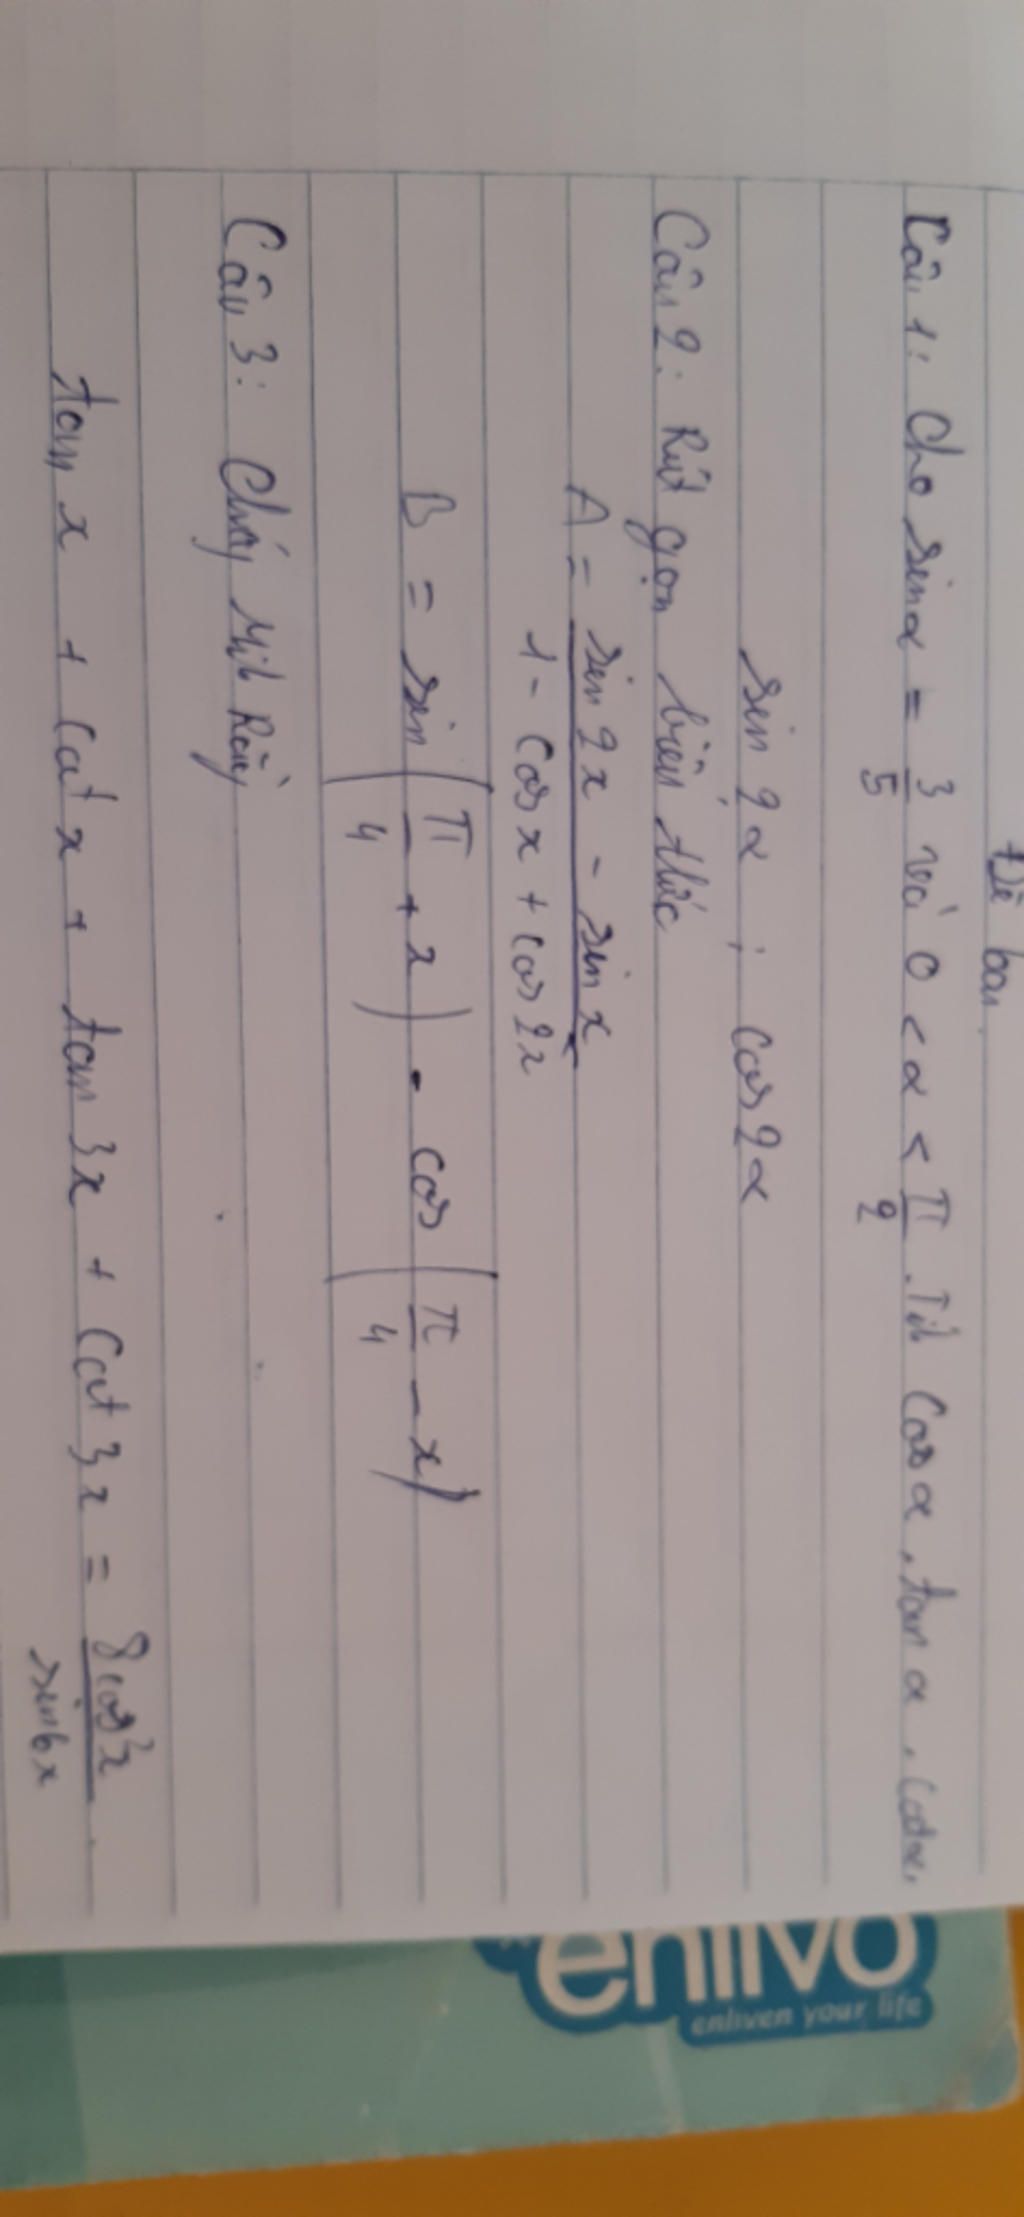 Đề bài
Câu 1: Cho sin α = 3/5 và 0 < α < π/2. Tính cos α, tan α, cot α,
sin 2α ; cos 2α
Câu 2: Rút gọn biểu thức
A = (sin 2x - sin x)/(1 - cos x + cos 2x)
B = sin(π/4 + x) - cos(π/4 - x)
Câu 3: Chứng Minh Rằng
tan x + cot x + tan 3x + cot 3x = 8cos²x/sin6x
enlivo
enliven your life